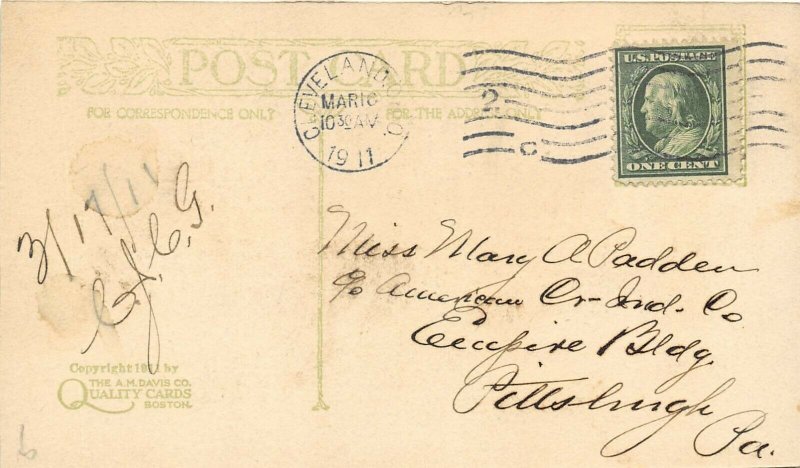 POST CARD
FOR CORRESPONDENCE ONLY
FOR THE ADDRESS ONLY
CLEVELAND, O.
MAR 16
10 30 AM
1911
2
C
U.S. POSTAGE
ONE CENT
3/17/11
Miss Mary A Padden
c/o American Cr-Ind. Co
Empire Bldg
Pittsburgh
Pa.
Copyright 1911 by
THE A.M. DAVIS CO.
QUALITY CARDS
BOSTON.